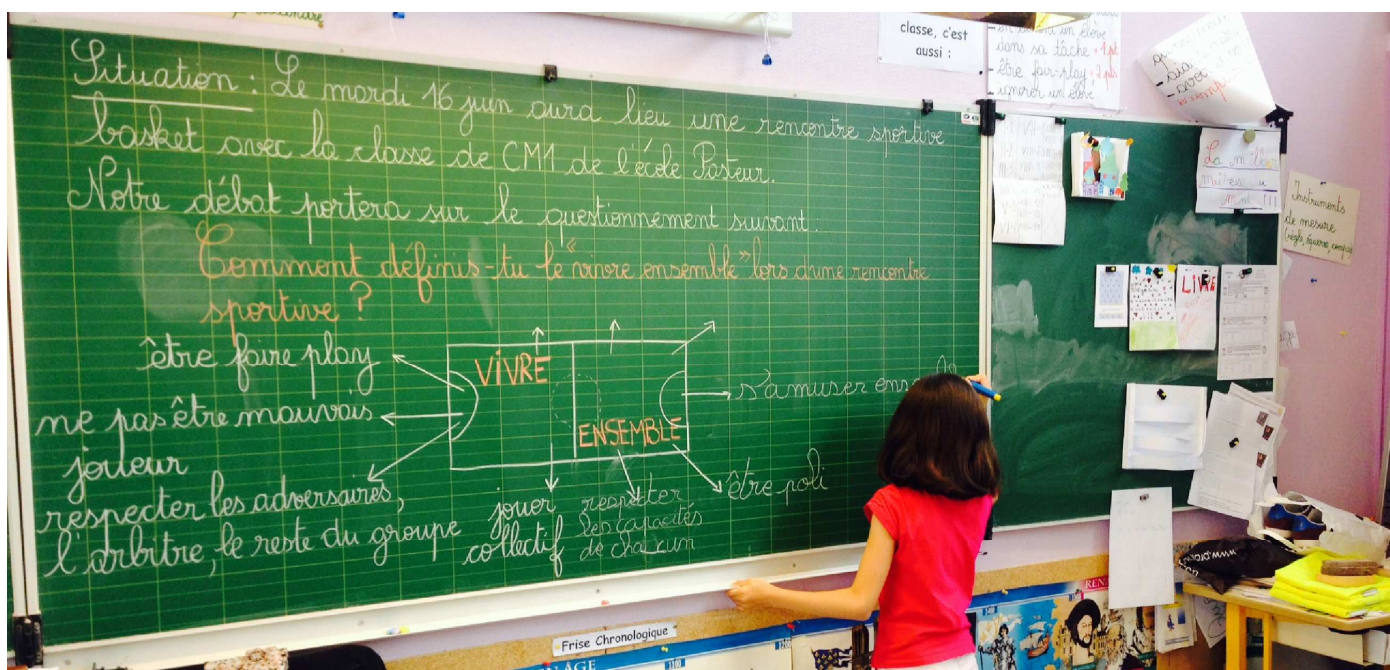 Situation : Le mardi 16 juin aura lieu une rencontre sportive
basket avec la classe de CM1 de l'école Pasteur.
Notre débat portera sur le questionnement suivant :
Comment définis-tu le "vivre ensemble" lors d'une rencontre
sportive ?
être faire play
ne pas être mauvais
joueur
respecter les adversaires,
l'arbitre, le reste du groupe
VIVRE
ENSEMBLE
jouer
collectif
respetter
les capacités
de chacun
s'amuser
être poli
classe, c'est
aussi :
un élève
dans sa tâche +1 pt
être fair-play +2 pts
ignorer un élève
La
Instruments
de mesure
(règle, équerre, compas)
LIVRE
Frise Chronologique
ÂGE
REN
www.